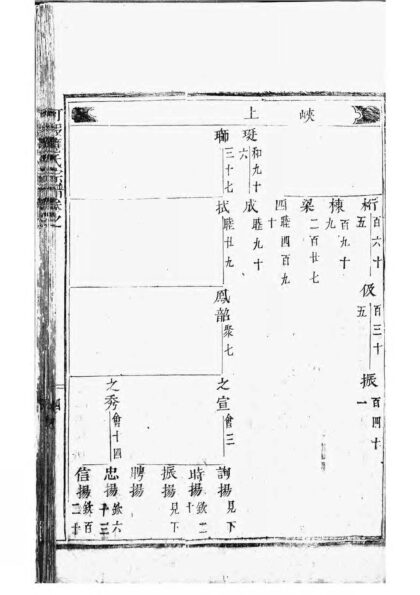 峽上
桁 百六十五
伋 百三十五
振 百四十一
棟 百九十九
梁 二百廿七
四 睦四百九十
成 睦九十
和九十六
聯 三十七
拭 睦廿九
鳳韶 聚七
之宣 會三
詢揚 見下
時揚 欽二十
振揚 見下
聘揚
之秀 會十四
忠揚 欽六十三
信揚 欽百二十
氏宗譜卷之